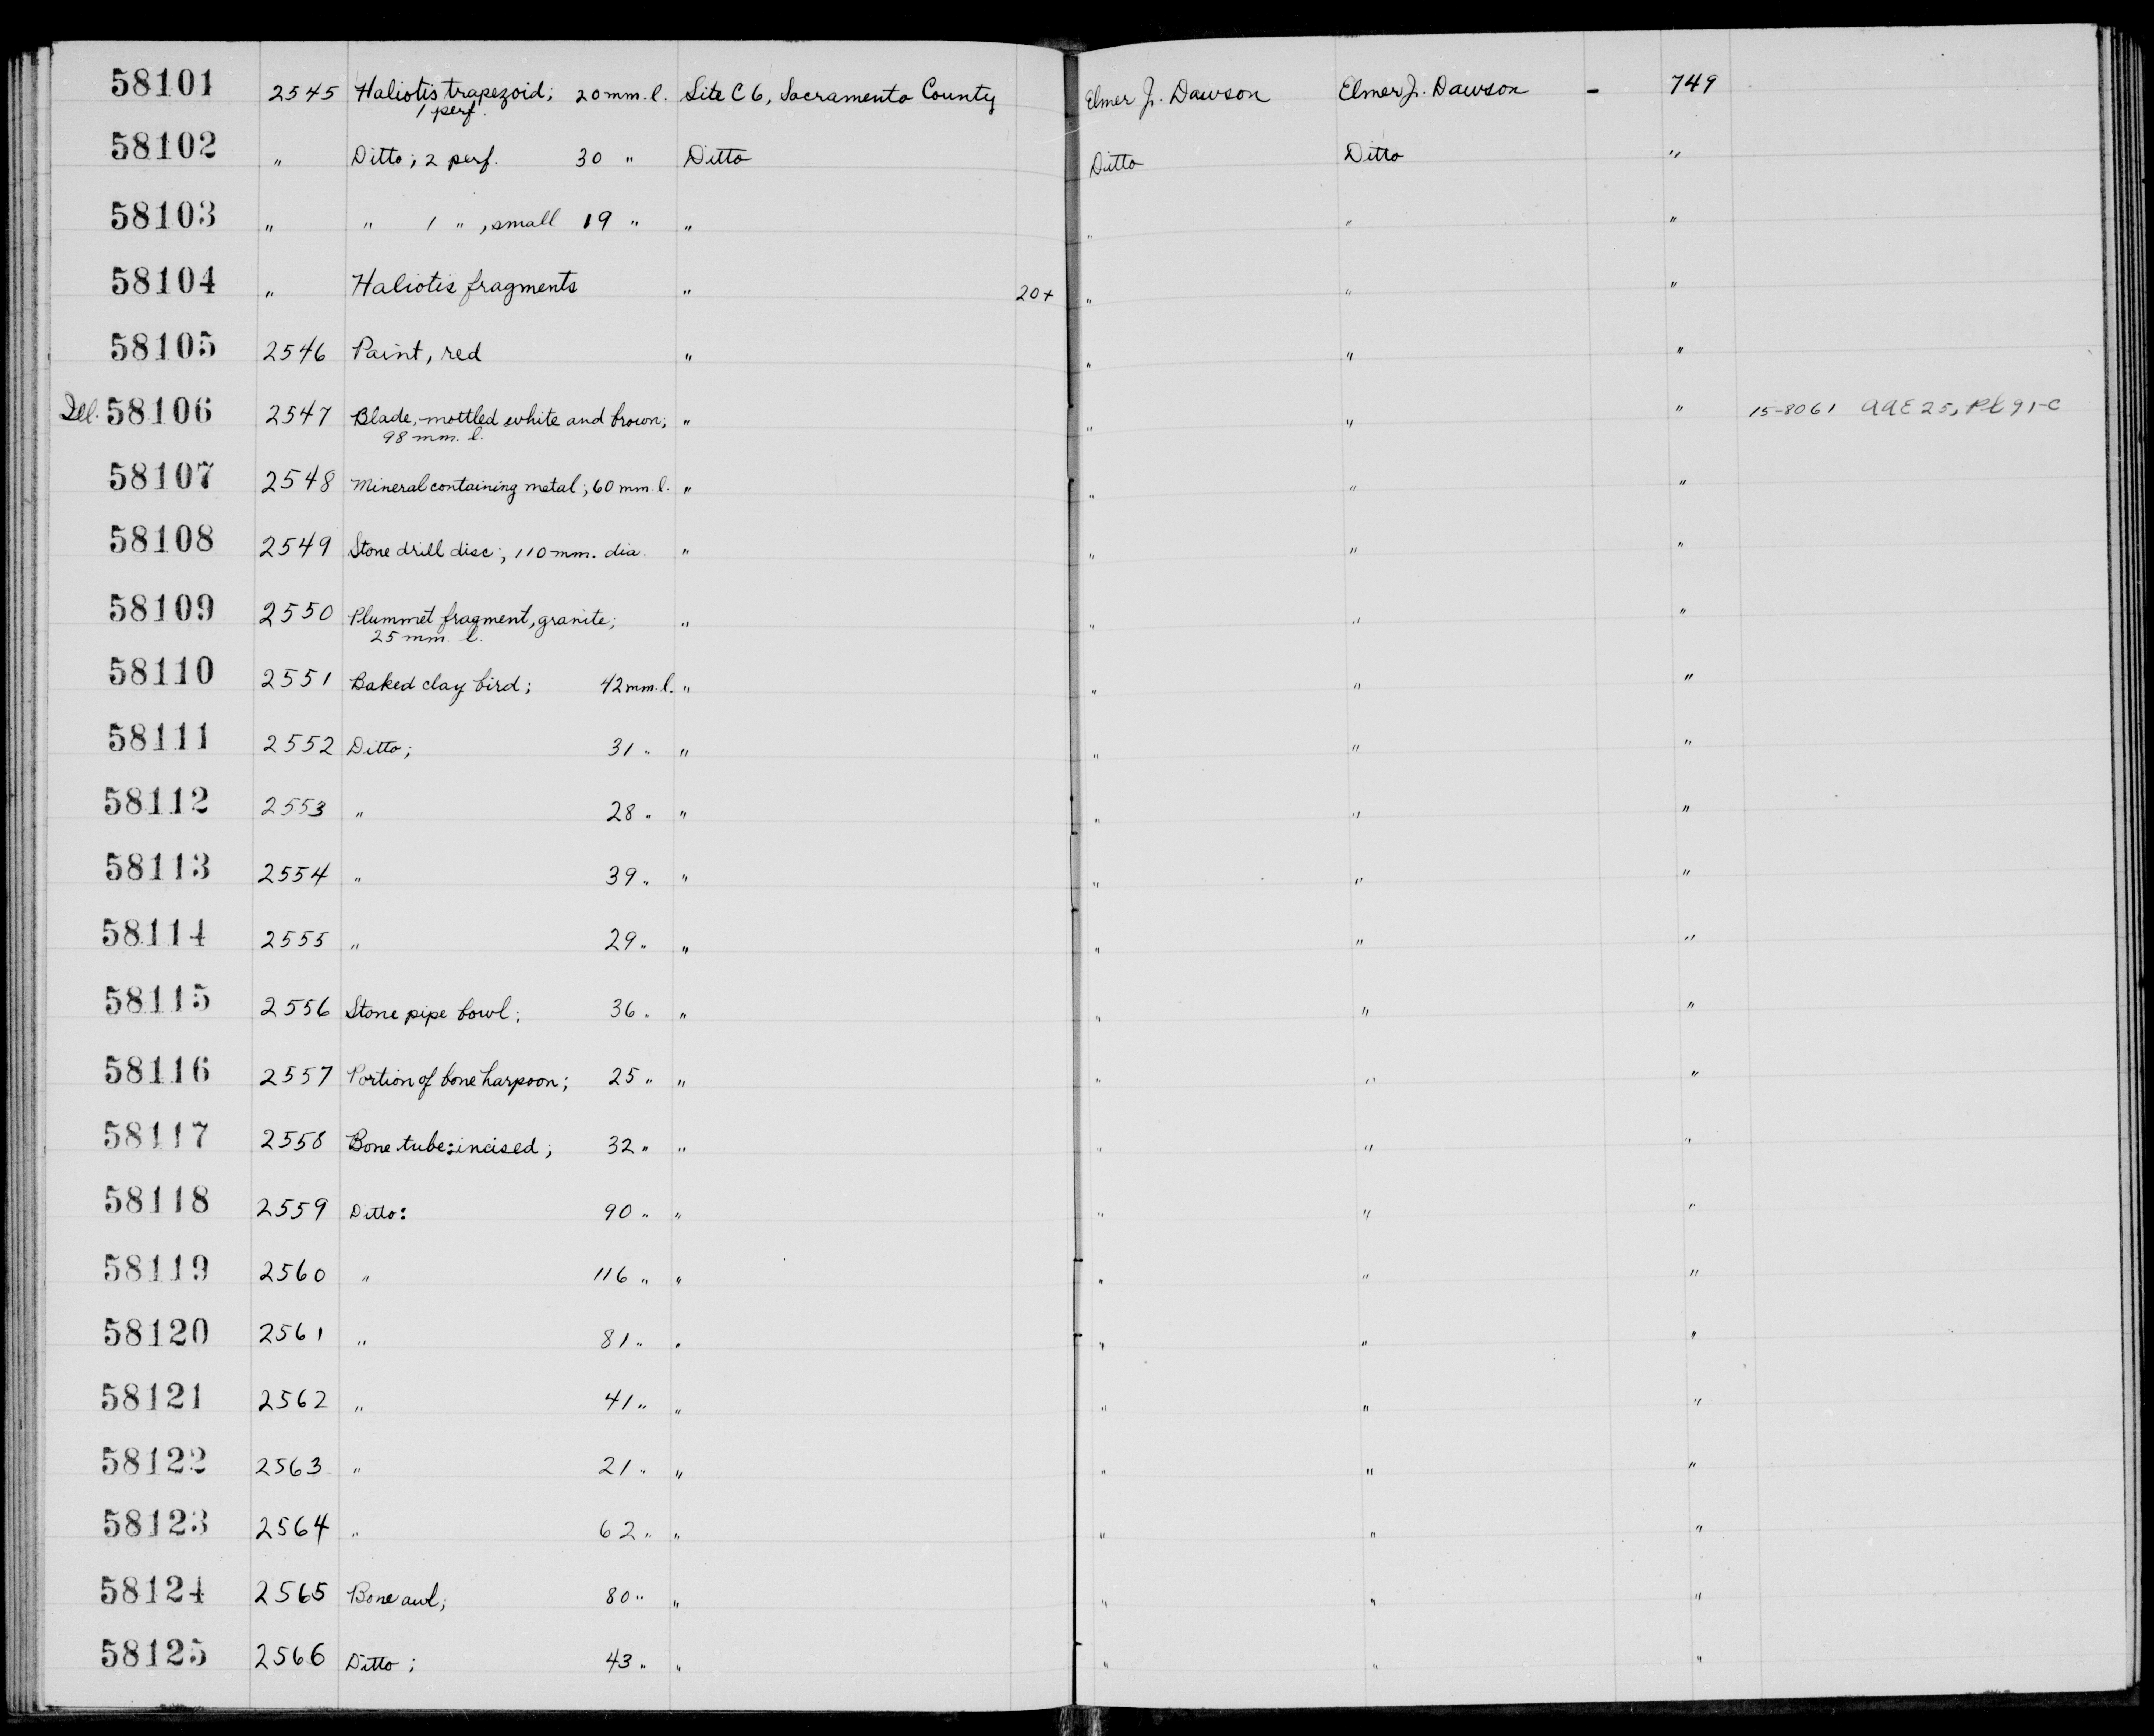 58101 2545 Haliotis trapezoid; 20 mm. l. Site C6, Sacramento County Elmer J. Dawson Elmer J. Dawson - 749
1 perf.
58102 " Ditto; 2 perf. 30 " Ditto Ditto Ditto "
58103 " " 1 " , small 19 " " " " "
58104 " Haliotis fragments " 20+ " " "
58105 2546 Paint, red " " " "
Ill. 58106 2547 Blade, mottled white and brown; " " " " 15-8061 AAE 25, Pl 91-C
98 mm. l.
58107 2548 Mineral containing metal; 60 mm. l. " " " "
58108 2549 Stone drill disc; 110 mm. dia. " " " "
58109 2550 Plummet fragment, granite; " " " "
25 mm. l.
58110 2551 Baked clay bird; 42 mm. l. " " " "
58111 2552 Ditto; 31 " " " " "
58112 2553 " 28 " " " " "
58113 2554 " 39 " " " " "
58114 2555 " 29 " " " " "
58115 2556 Stone pipe bowl; 36 " " " " "
58116 2557 Portion of bone harpoon; 25 " " " " "
58117 2558 Bone tube: incised; 32 " " " " "
58118 2559 Ditto: 90 " " " " "
58119 2560 " 116 " " " " "
58120 2561 " 81 " " " " "
58121 2562 " 41 " " " " "
58122 2563 " 21 " " " " "
58123 2564 " 62 " " " " "
58124 2565 Bone awl; 80 " " " " "
58125 2566 Ditto; 43 " " " " "